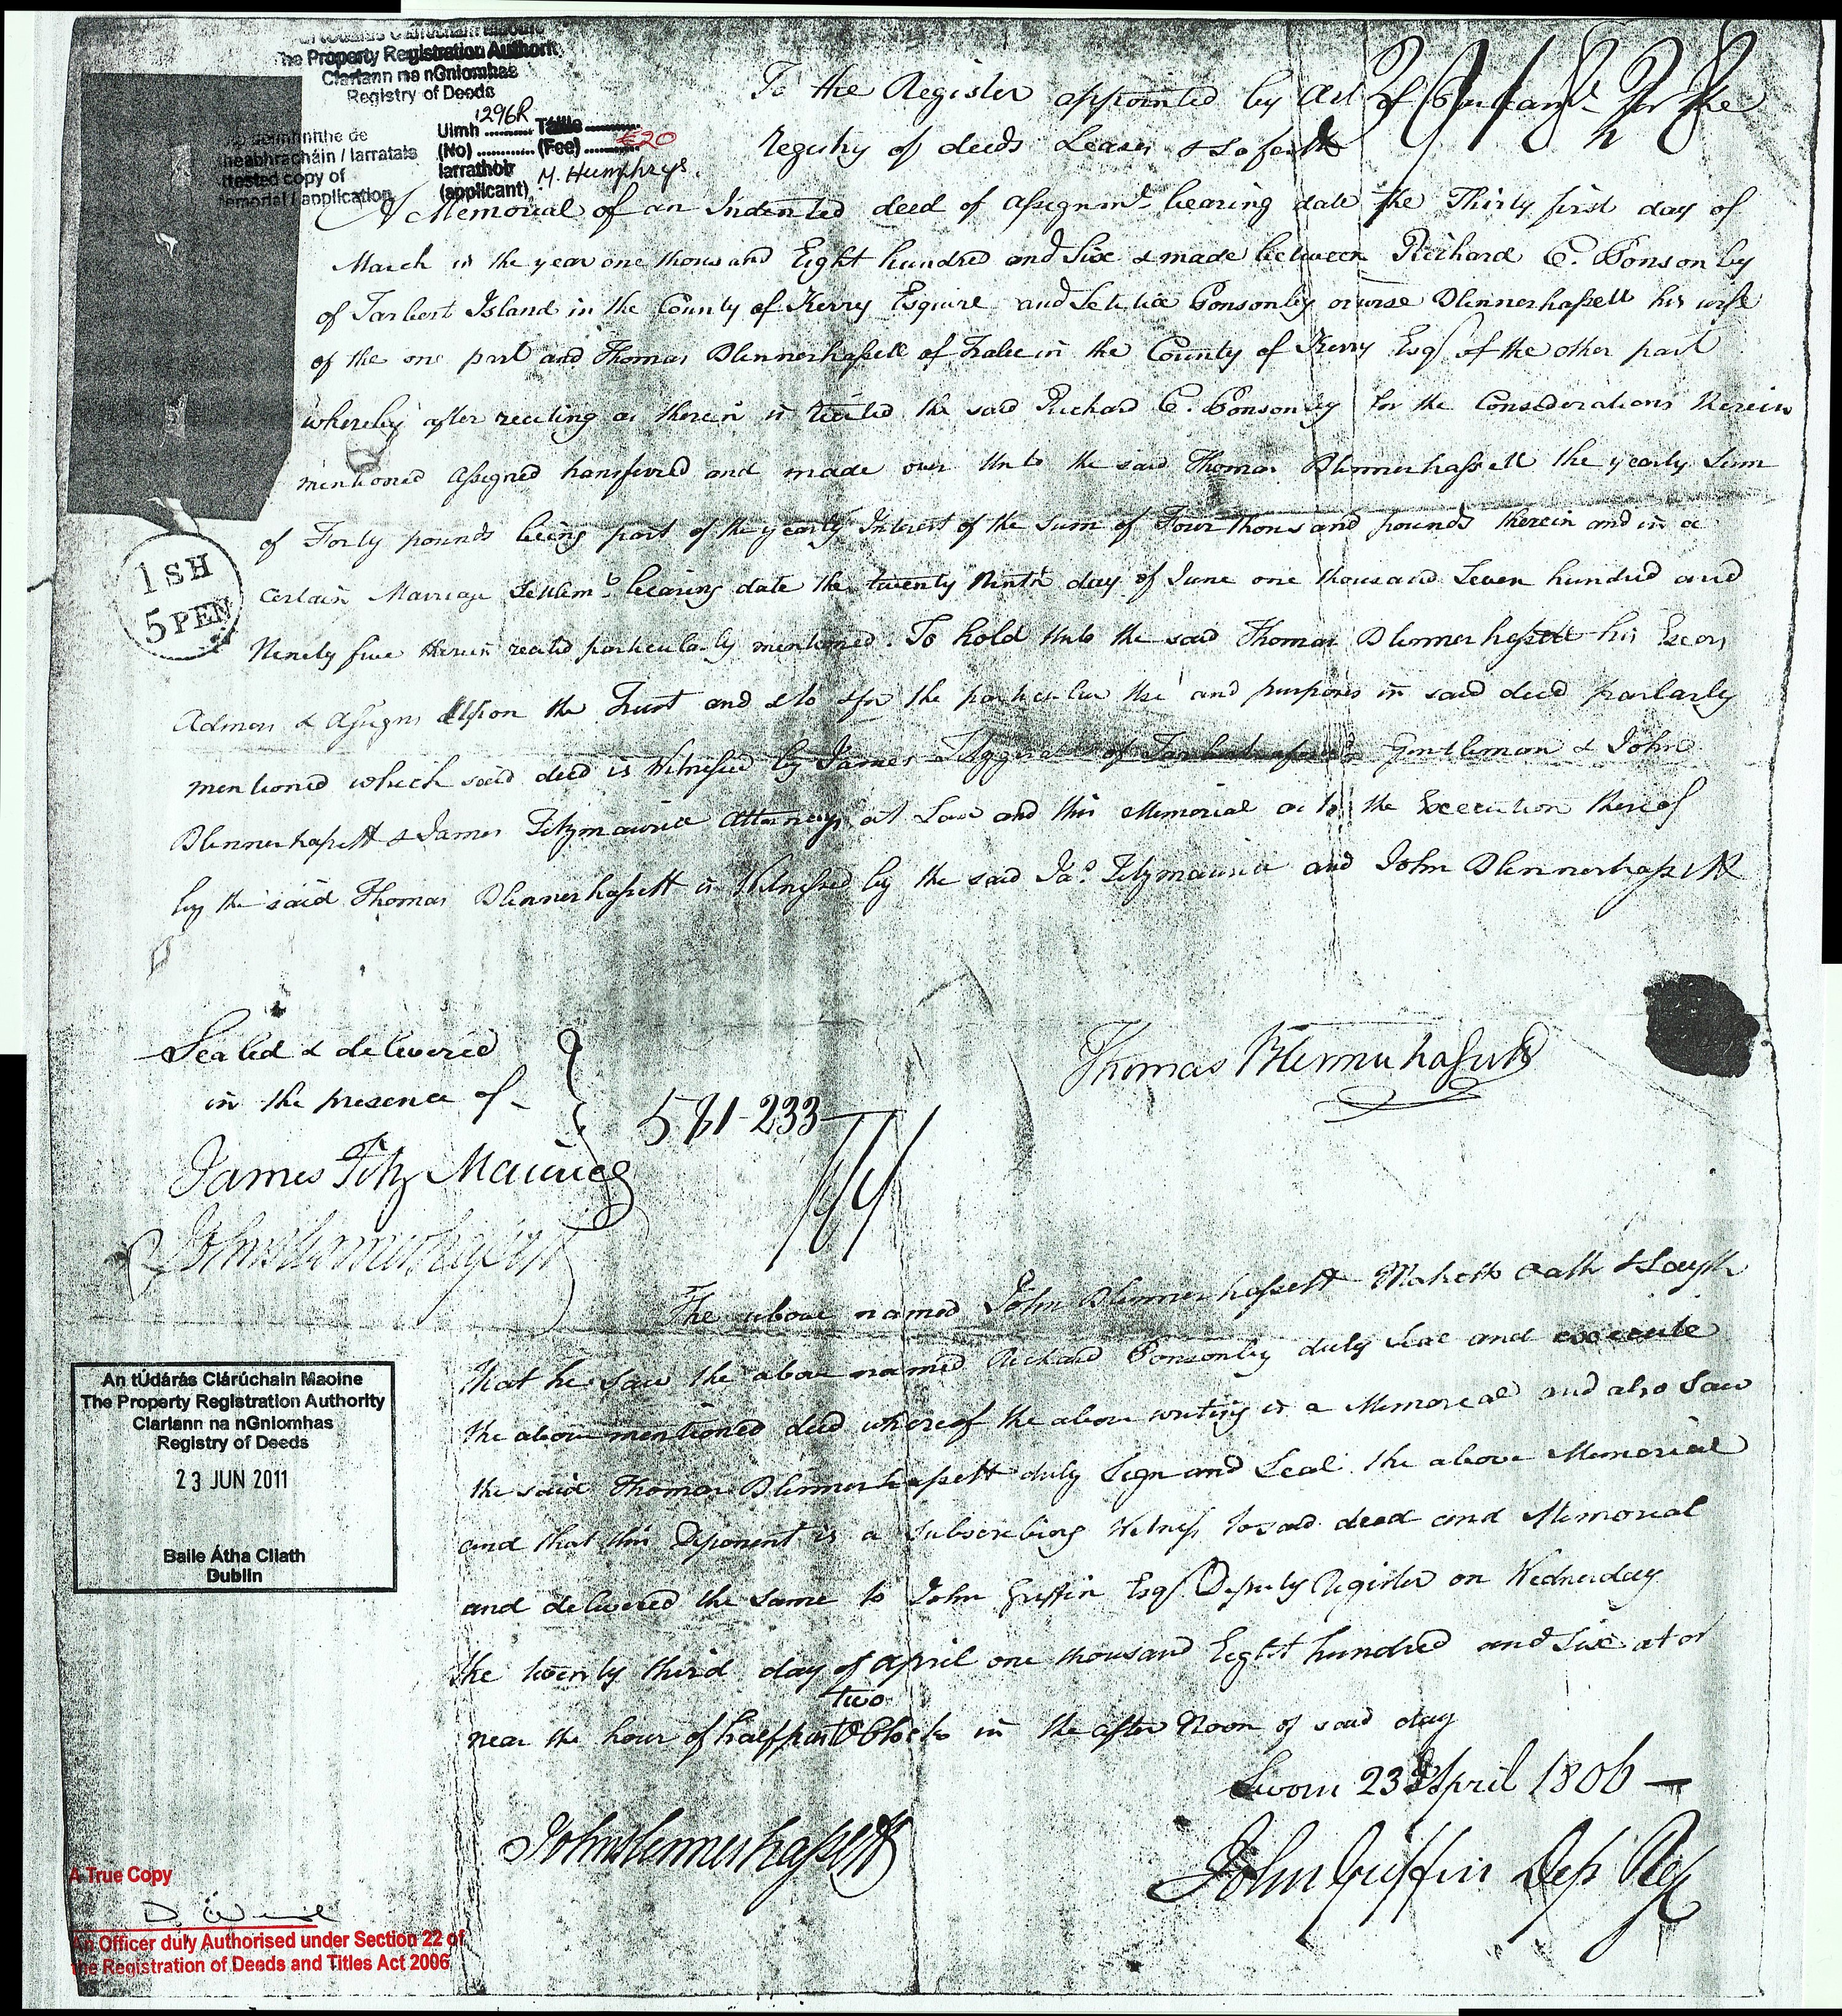 The Property Registration Authorit
Clárlann na nGníomhas
Registry of Deeds
deimhnithe de
heabhracháin / Iarratais
ttested copy of
emorial / application
Uimh 1296R Táille
(No) (Fee) €20
Iarrathóir
(applicant) M. Humphrys.
To the Register appointed by Act of Parliamt. for the
Registry of deeds Leases & so forth
A Memorial of an Indented deed of assignmt. bearing date the Thirty first day of
March in the year one thousand Eight hundred and Six & made between Richard C. Ponsonby
of Tarbert Island in the County of Kerry Esquire and Letitia Ponsonby orwise Blennerhassett his wife
of the one part and Thomas Blennerhassett of Tralee in the County of Kerry Esqr of the other part
whereby after reciting as therein is recited the said Richard C. Ponsonby for the Considerations therein
mentioned assigned transferred and made over unto the said Thomas Blennerhassett the yearly Sum
of Forty pounds being part of the yearly Interest of the Sum of Four thousand pounds therein and in a
Certain Marriage Settlemt. bearing date the twenty Ninth day of June one thousand Seven hundred and
Ninety five therein recited particularly mentioned. To hold unto the said Thomas Blennerhassett his Exors
Admors & Assigns upon the Trust and & to & for the particular use and purposes in said deed parlarly
mentioned which said deed is Witnessed by James of Tarbert aforesd Gentleman & John
Blennerhassett & James Fitzmaurice Attorneys at Law and this Memorial as to the Execution thereof
by the said Thomas Blennerhassett is Witnessed by the said Jas. Fitzmaurice and John Blennerhassett
1 SH
5 PEN
Sealed & delivered
in the presence of
Thomas Blennerhassett
581-233
James Fitz Maurice
John Blennerhassett
The above named John Blennerhassett Maketh Oath & Sayth
that he saw the above named Richard Ponsonby duly Seal and execute
the above mentioned deed whereof the above writing is a Memorial and also Saw
the said Thomas Blennerhassett duly Sign and Seal the above Memorial
and that this Deponent is a Subscribing Witness to said deed and Memorial
and delivered the same to John Griffin Esqr Deputy Register on Wednesday
the twenty third day of April one thousand Eight hundred and Six at or
near the hour of half past two O Clock in the after Noon of said day
Sworn 23d April 1806
John Blennerhassett
John Griffin Dep Reg
An tÚdarás Clárúcháin Maoine
The Property Registration Authority
Clárlann na nGníomhas
Registry of Deeds
23 JUN 2011
Baile Átha Cliath
Dublin
A True Copy
An Officer duly Authorised under Section 22 of
the Registration of Deeds and Titles Act 2006